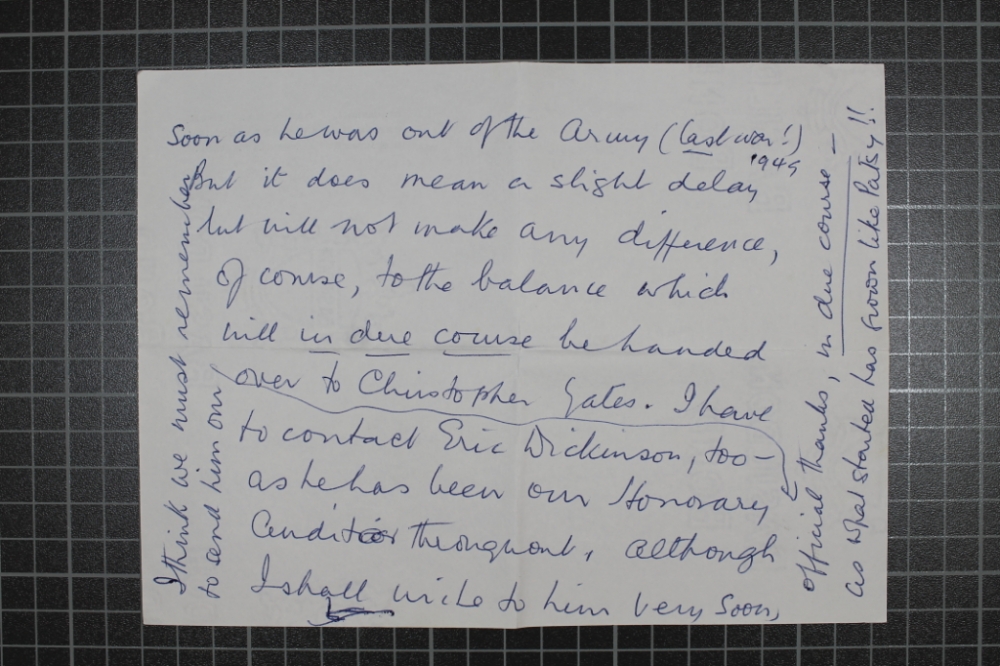 Soon as he was out of the Army (last war!)
1945
But it does mean a slight delay
but will not make any difference,
of course, to the balance which
will in due course be handed
over to Christopher Yates. I have
to contact Eric Dickinson, too –
as he has been our Honorary
Auditor throughout, although
I shall write to him very soon,
I think we must remember
to send him our
official thanks, in due course –
as what started has grown like Patsy!!